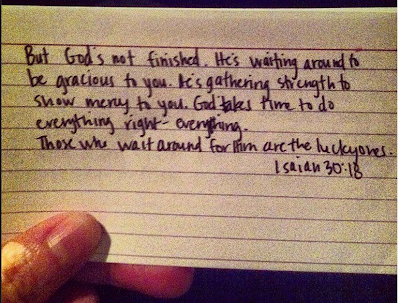 But God's not finished. He's waiting around to
be gracious to you. He's gathering strength to
show mercy to you. God takes time to do
everything right - everything.
Those who wait around for Him are the lucky ones.
Isaiah 30:18